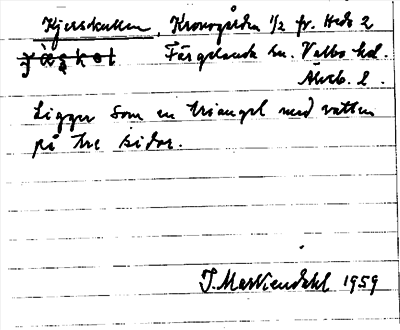 Kjerskutten, Kronogården 1/2 fr. Heds 2
Färgelanda sn. Valbo hd.
Älvsb. l.
Ligger som en triangel med vatten
på tre sidor.
J. Martiendahl 1959